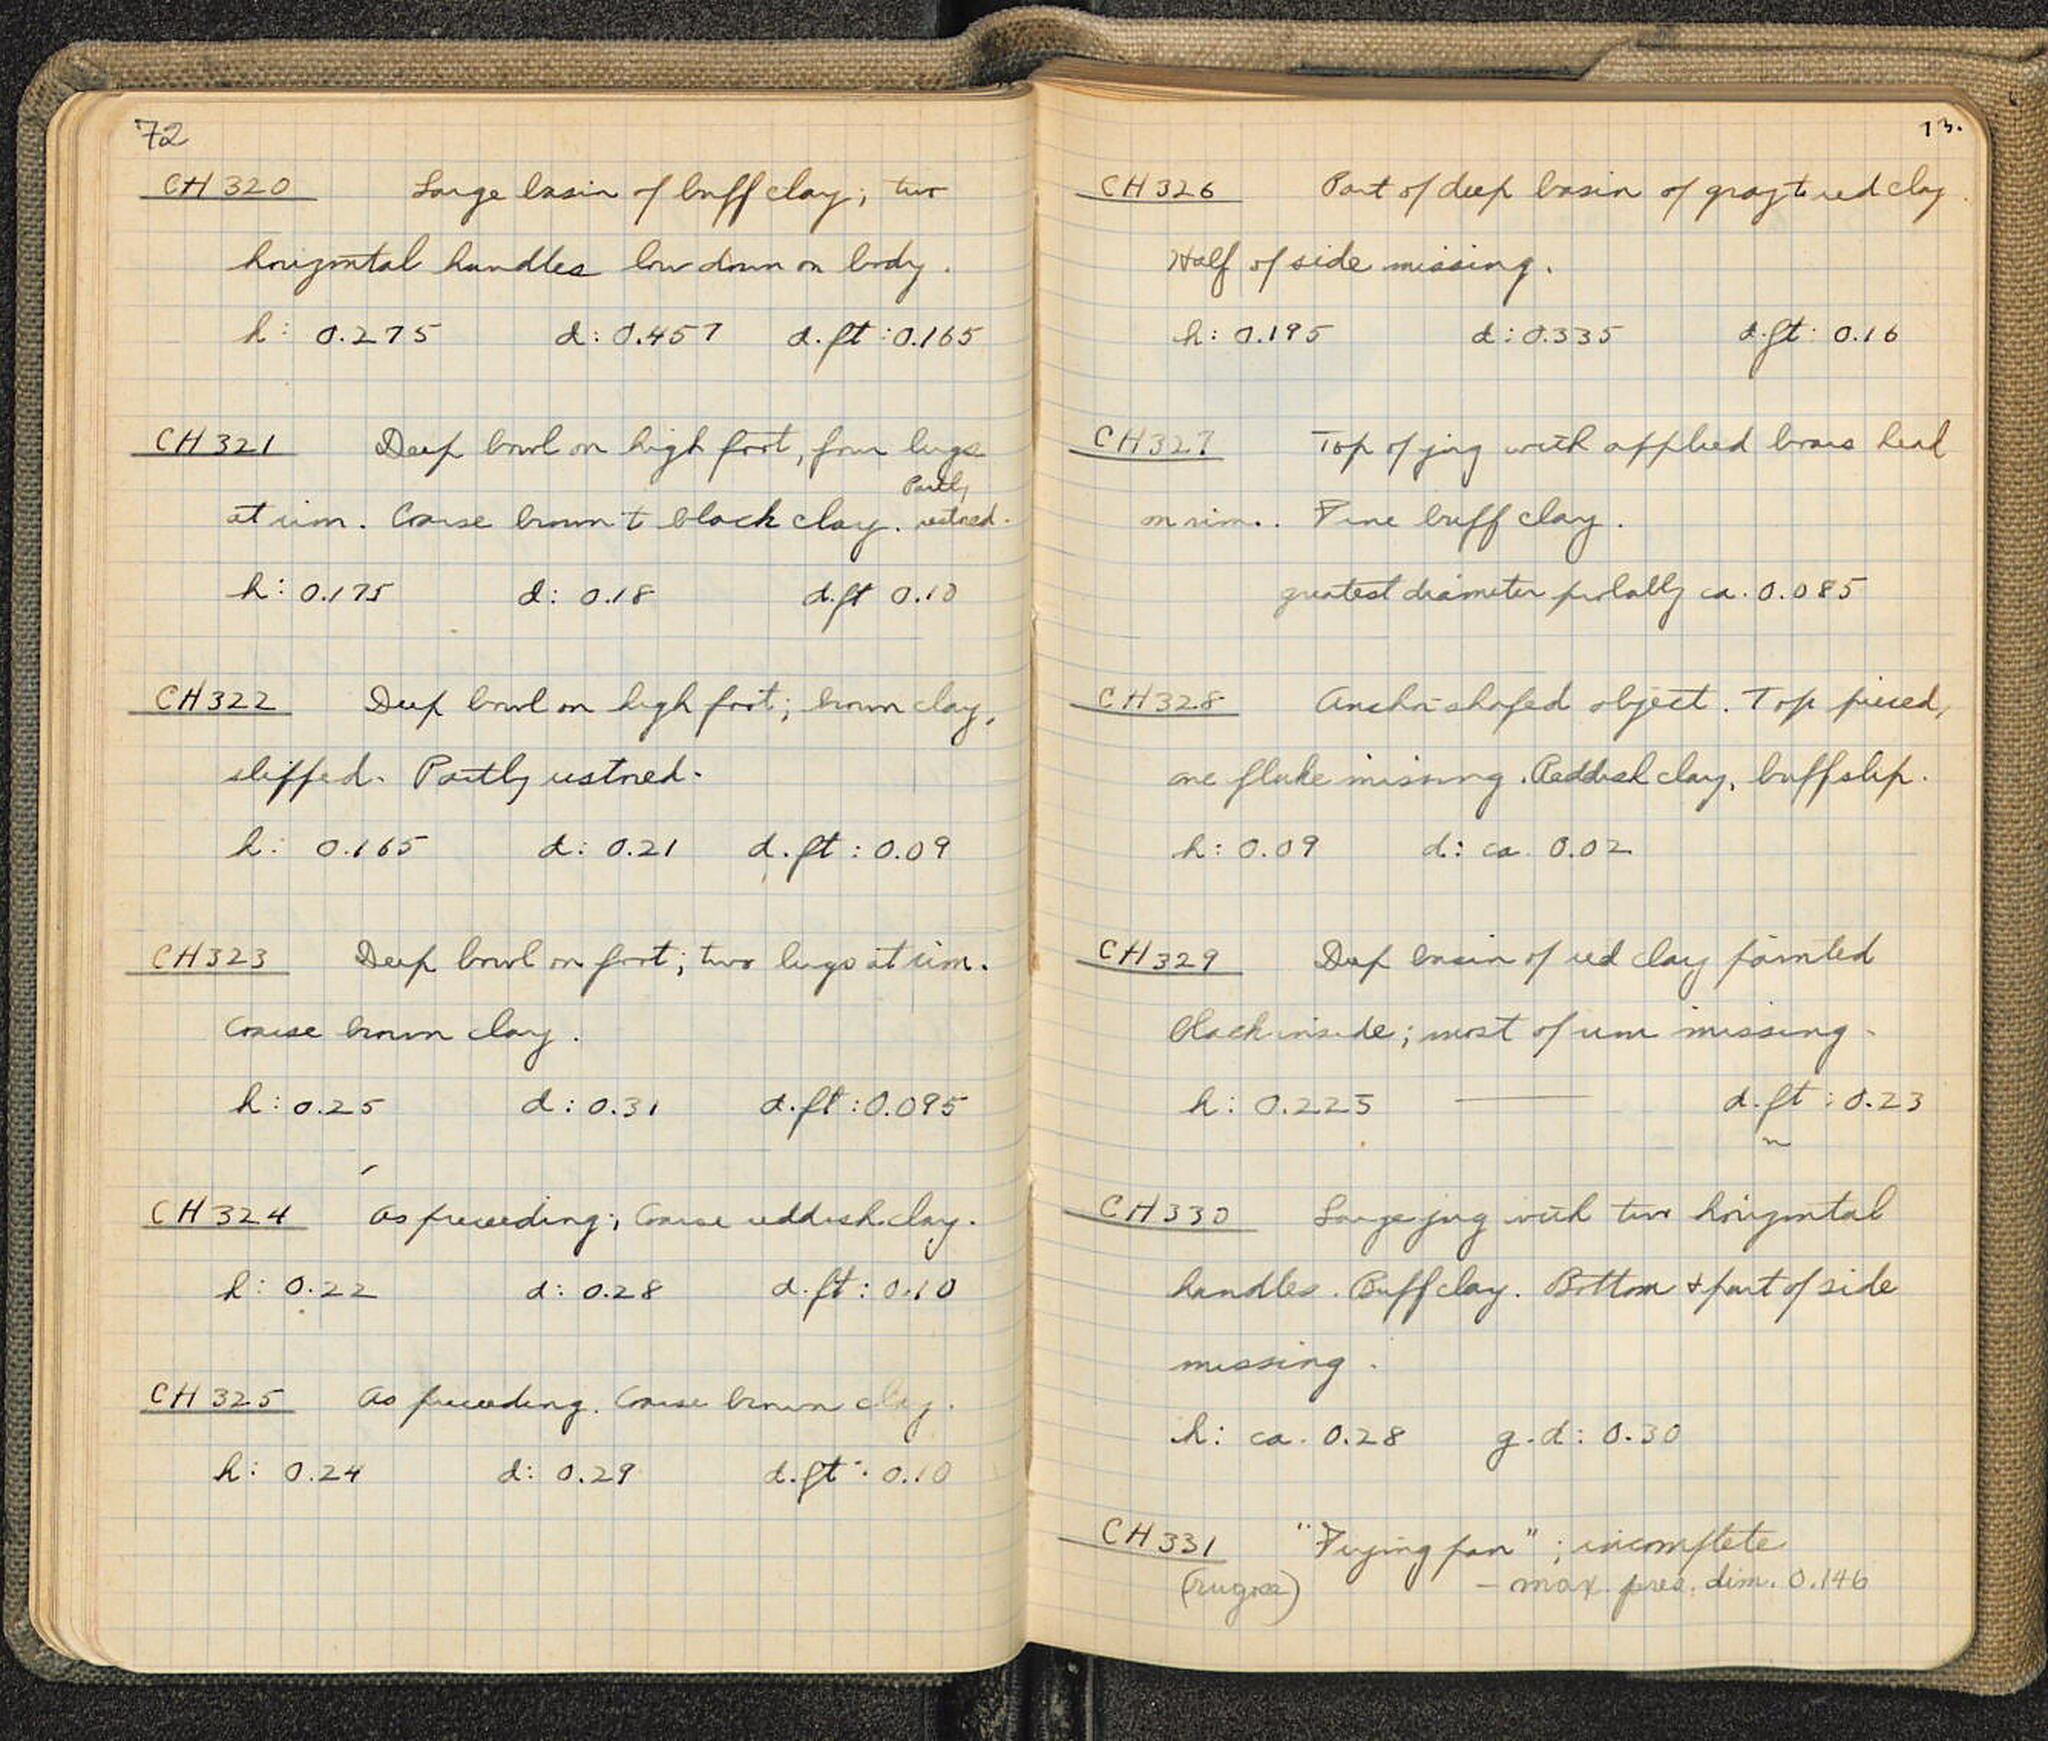 72
CH 320 Large basin of buff clay; two
horizontal handles low down on body.
h: 0.275 d: 0.457 d.ft: 0.165
CH 321 Deep bowl on high foot, four lugs
at rim. Coarse brown to black clay. Partly restored.
h: 0.175 d: 0.18 d.ft 0.10
CH 322 Deep bowl on high foot; brown clay,
slipped. Partly restored.
h: 0.165 d: 0.21 d.ft: 0.09
CH 323 Deep bowl on foot; two lugs at rim.
Coarse brown clay.
h: 0.25 d: 0.31 d.ft: 0.095
CH 324 As preceding; Coarse reddish clay.
h: 0.22 d: 0.28 d.ft: 0.10
CH 325 As preceding. Coarse brown clay.
h: 0.24 d: 0.29 d.ft: 0.10
73.
CH 326 Part of deep basin of gray to red clay.
Half of side missing.
h: 0.195 d: 0.335 d.ft: 0.16
CH 327 Top of jug with applied head
on rim. Fine buff clay.
greatest diameter probably ca. 0.085
CH 328 Anchor-shaped object. Top pierced,
one fluke missing. Reddish clay, buff slip.
h: 0.09 d: ca. 0.02
CH 329 Deep basin of red clay painted
black inside; most of rim missing.
h: 0.225 — d.ft: 0.23
CH 330 Large jug with two horizontal
handles. Buff clay. Bottom & part of side
missing.
h: ca. 0.28 g.d: 0.30
CH 331 "Frying pan"; incomplete
(rugosa) – max. pres. dim. 0.146